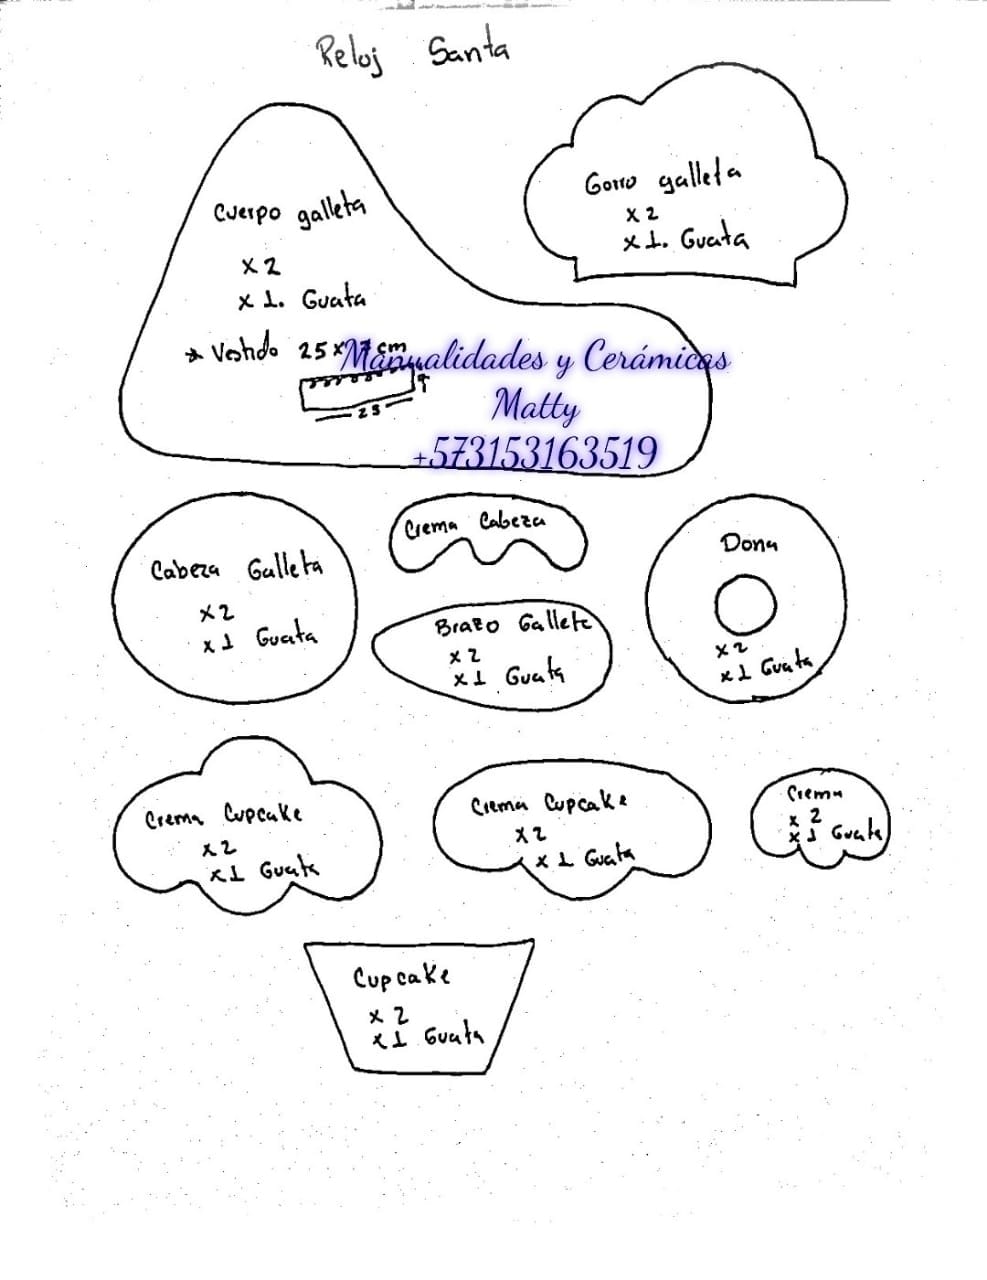 Reloj Santa
Cuerpo galleta
x 2
x 1. Guata
* Vestido 25 x 7 cm
25
Gorro galleta
x 2
x 1. Guata
Manualidades y Cerámicas
Matty
+573153163519
Cabeza Galleta
x 2
x 1 Guata
Crema Cabeza
Brazo Gallete
x 2
x 1 Guata
Dona
x 2
x 1 Guata
Crema Cupcake
x 2
x 1 Guata
Crema Cupcake
x 2
x 1 Guata
Crema
x 2
x 1 Guata
Cupcake
x 2
x 1 Guata